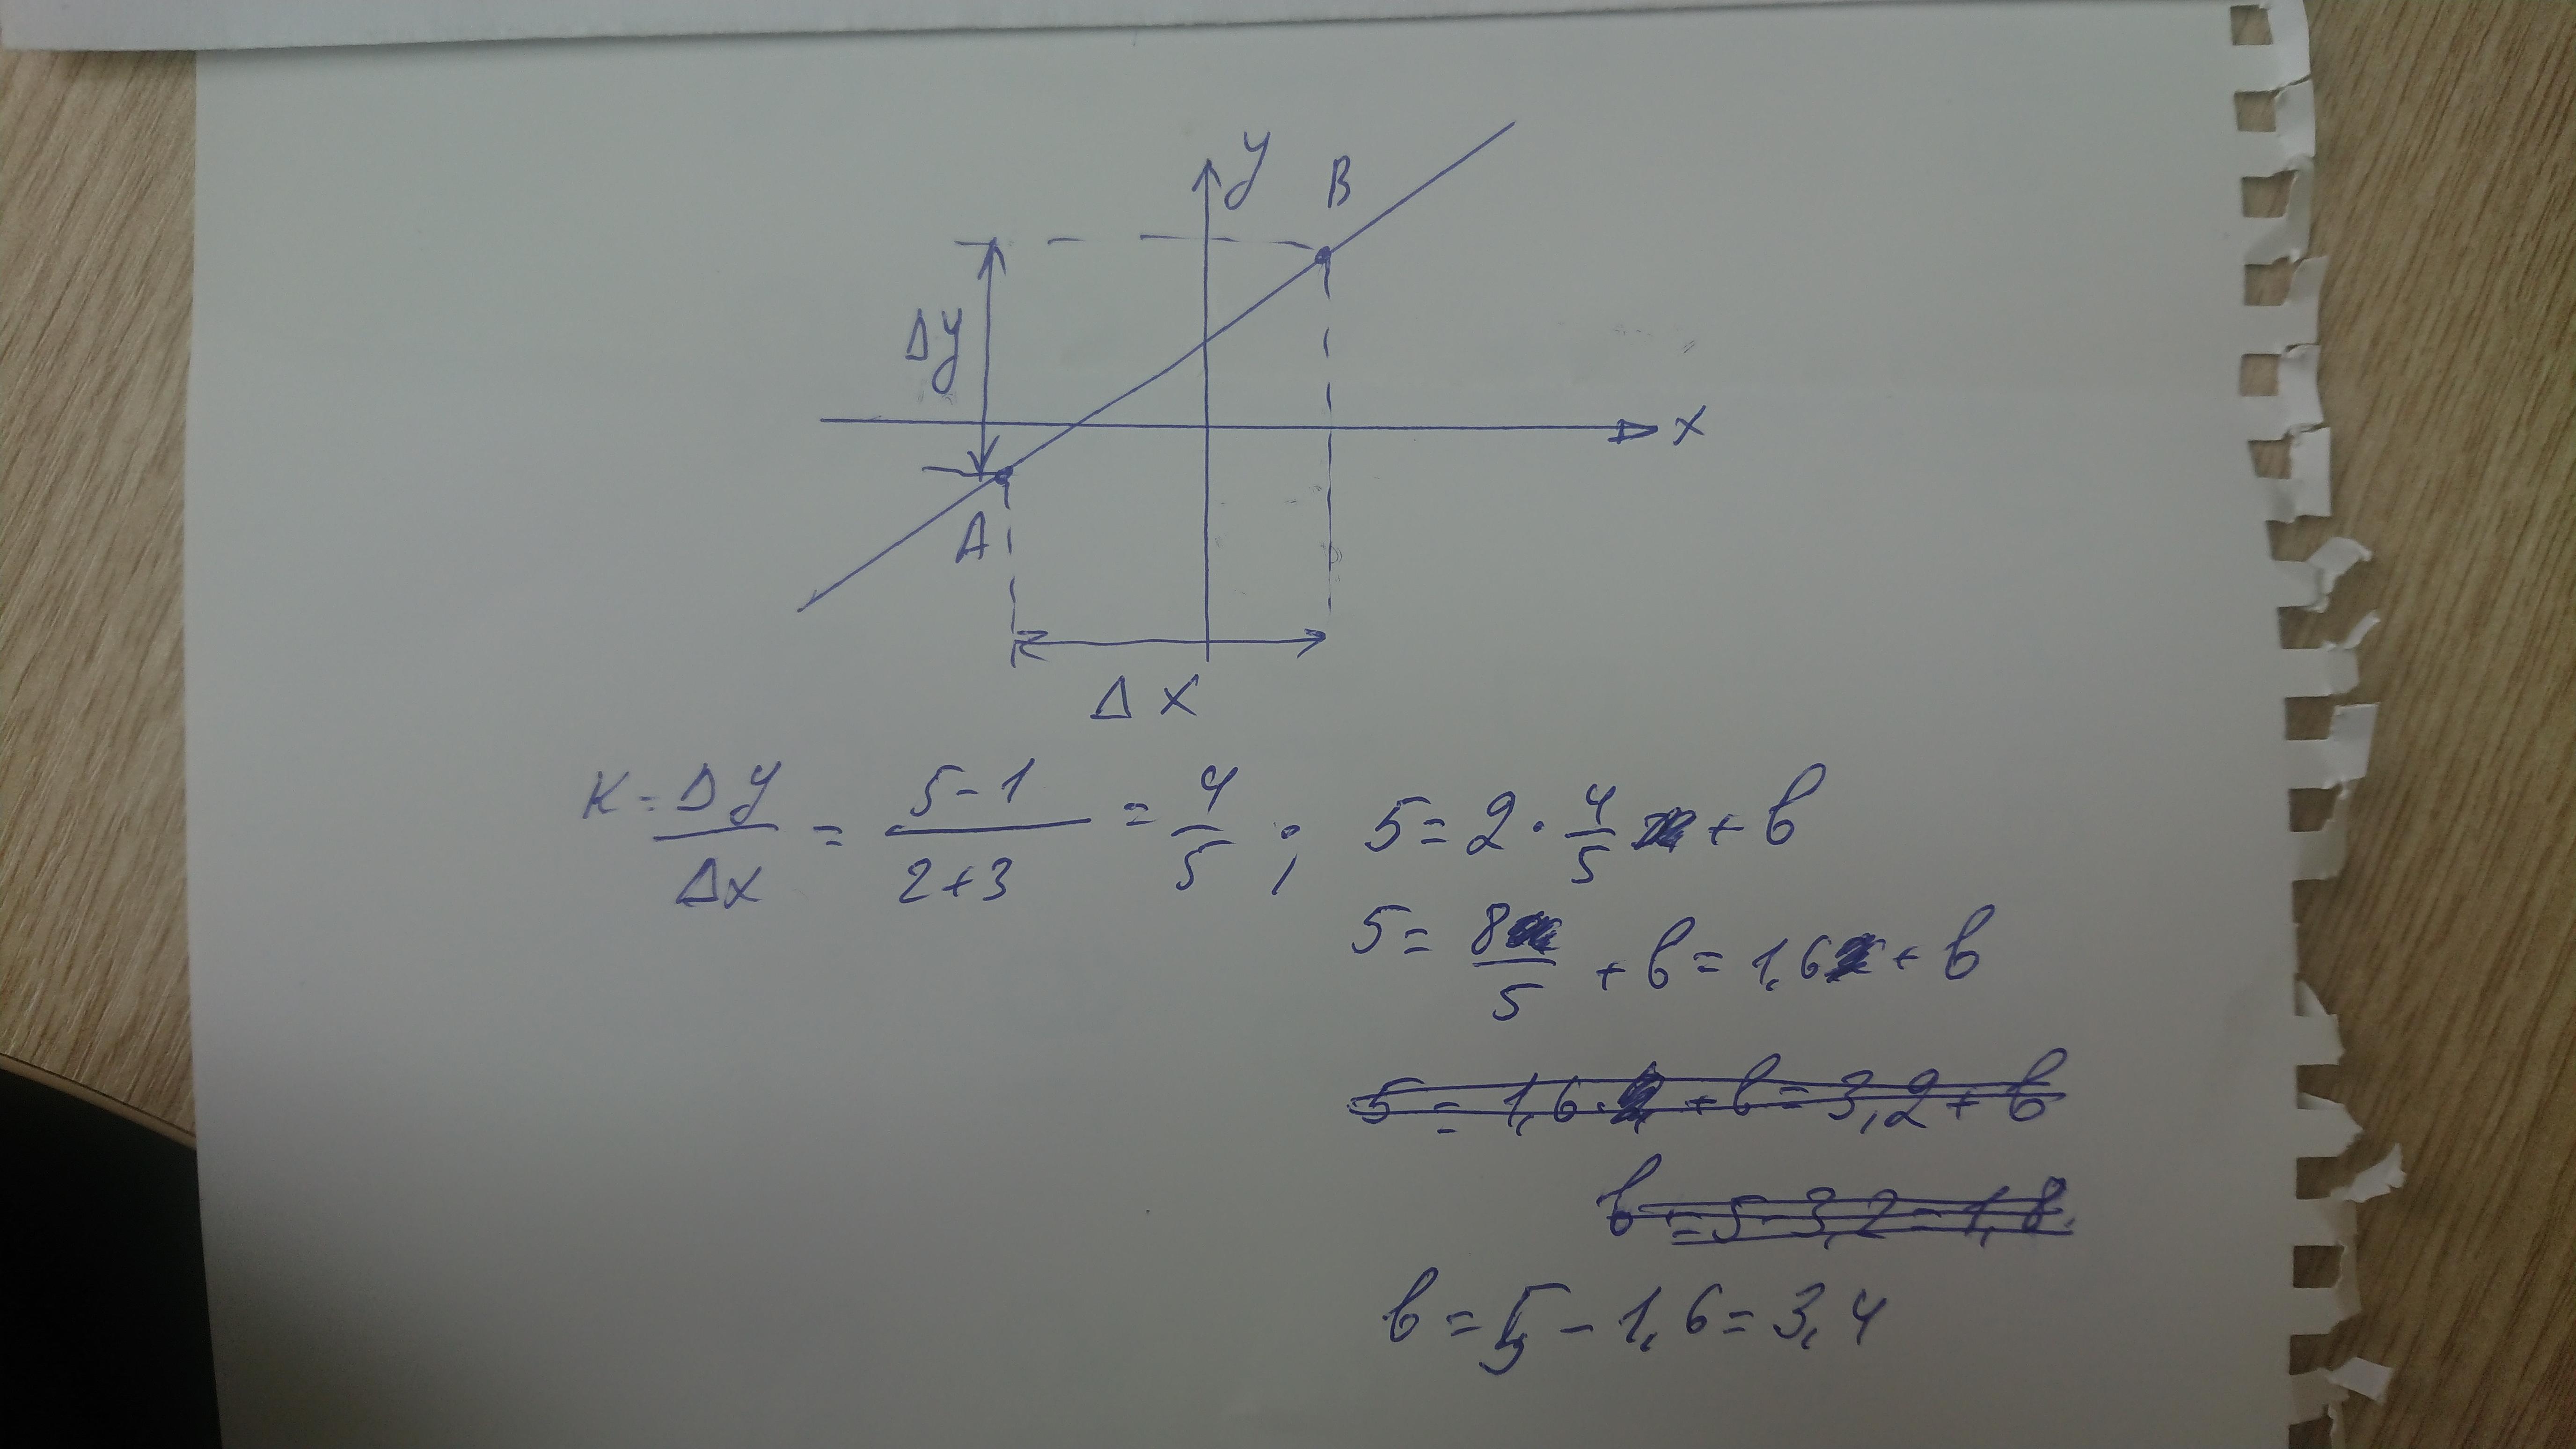 y
B
Δy
x
A
Δx
K = Δy/Δx = (5-1)/(2+3) = 4/5 ; 5 = 2 · 4/5 + b
5 = 8/5 + b = 1,6 + b
5 = 1,6 · 2 + b = 3,2 + b
b = 5 - 3,2 = 1,8
b = 5 - 1,6 = 3,4